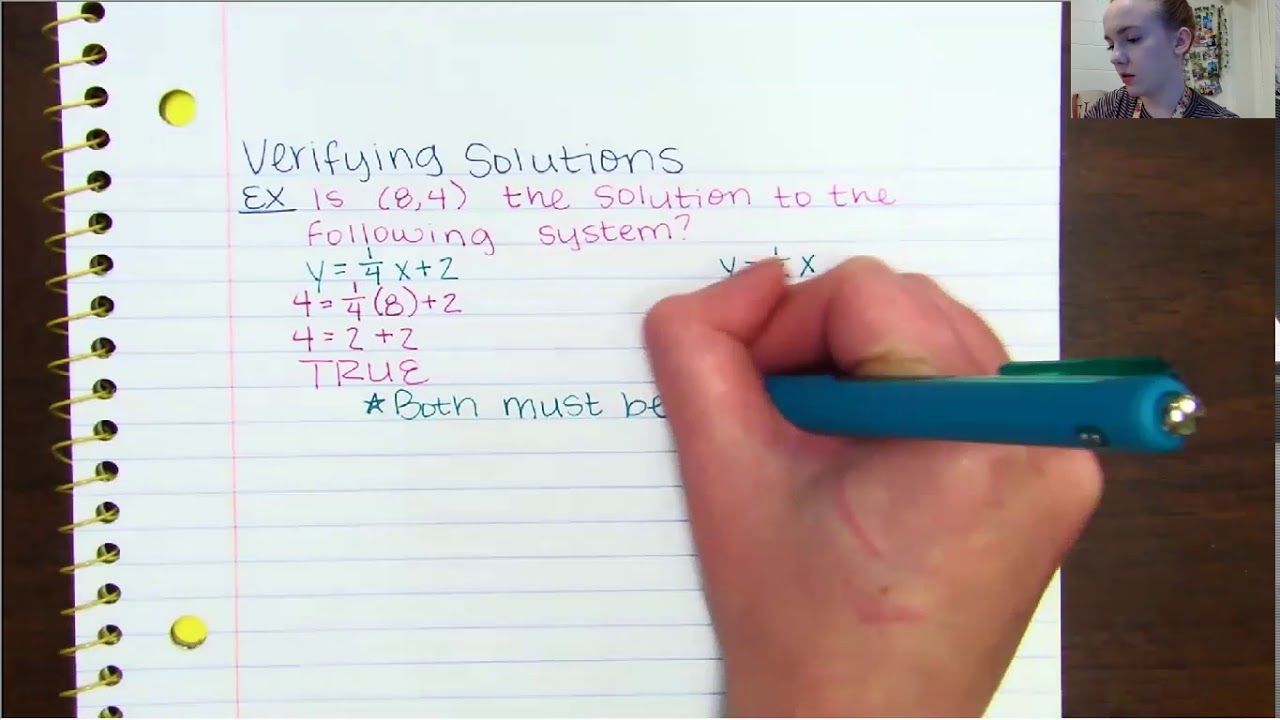 Verifying Solutions
EX Is (8,4) the solution to the
following system?
y = 1/4 x + 2
y = x
4 = 1/4 (8) + 2
4 = 2 + 2
TRUE
*Both must be